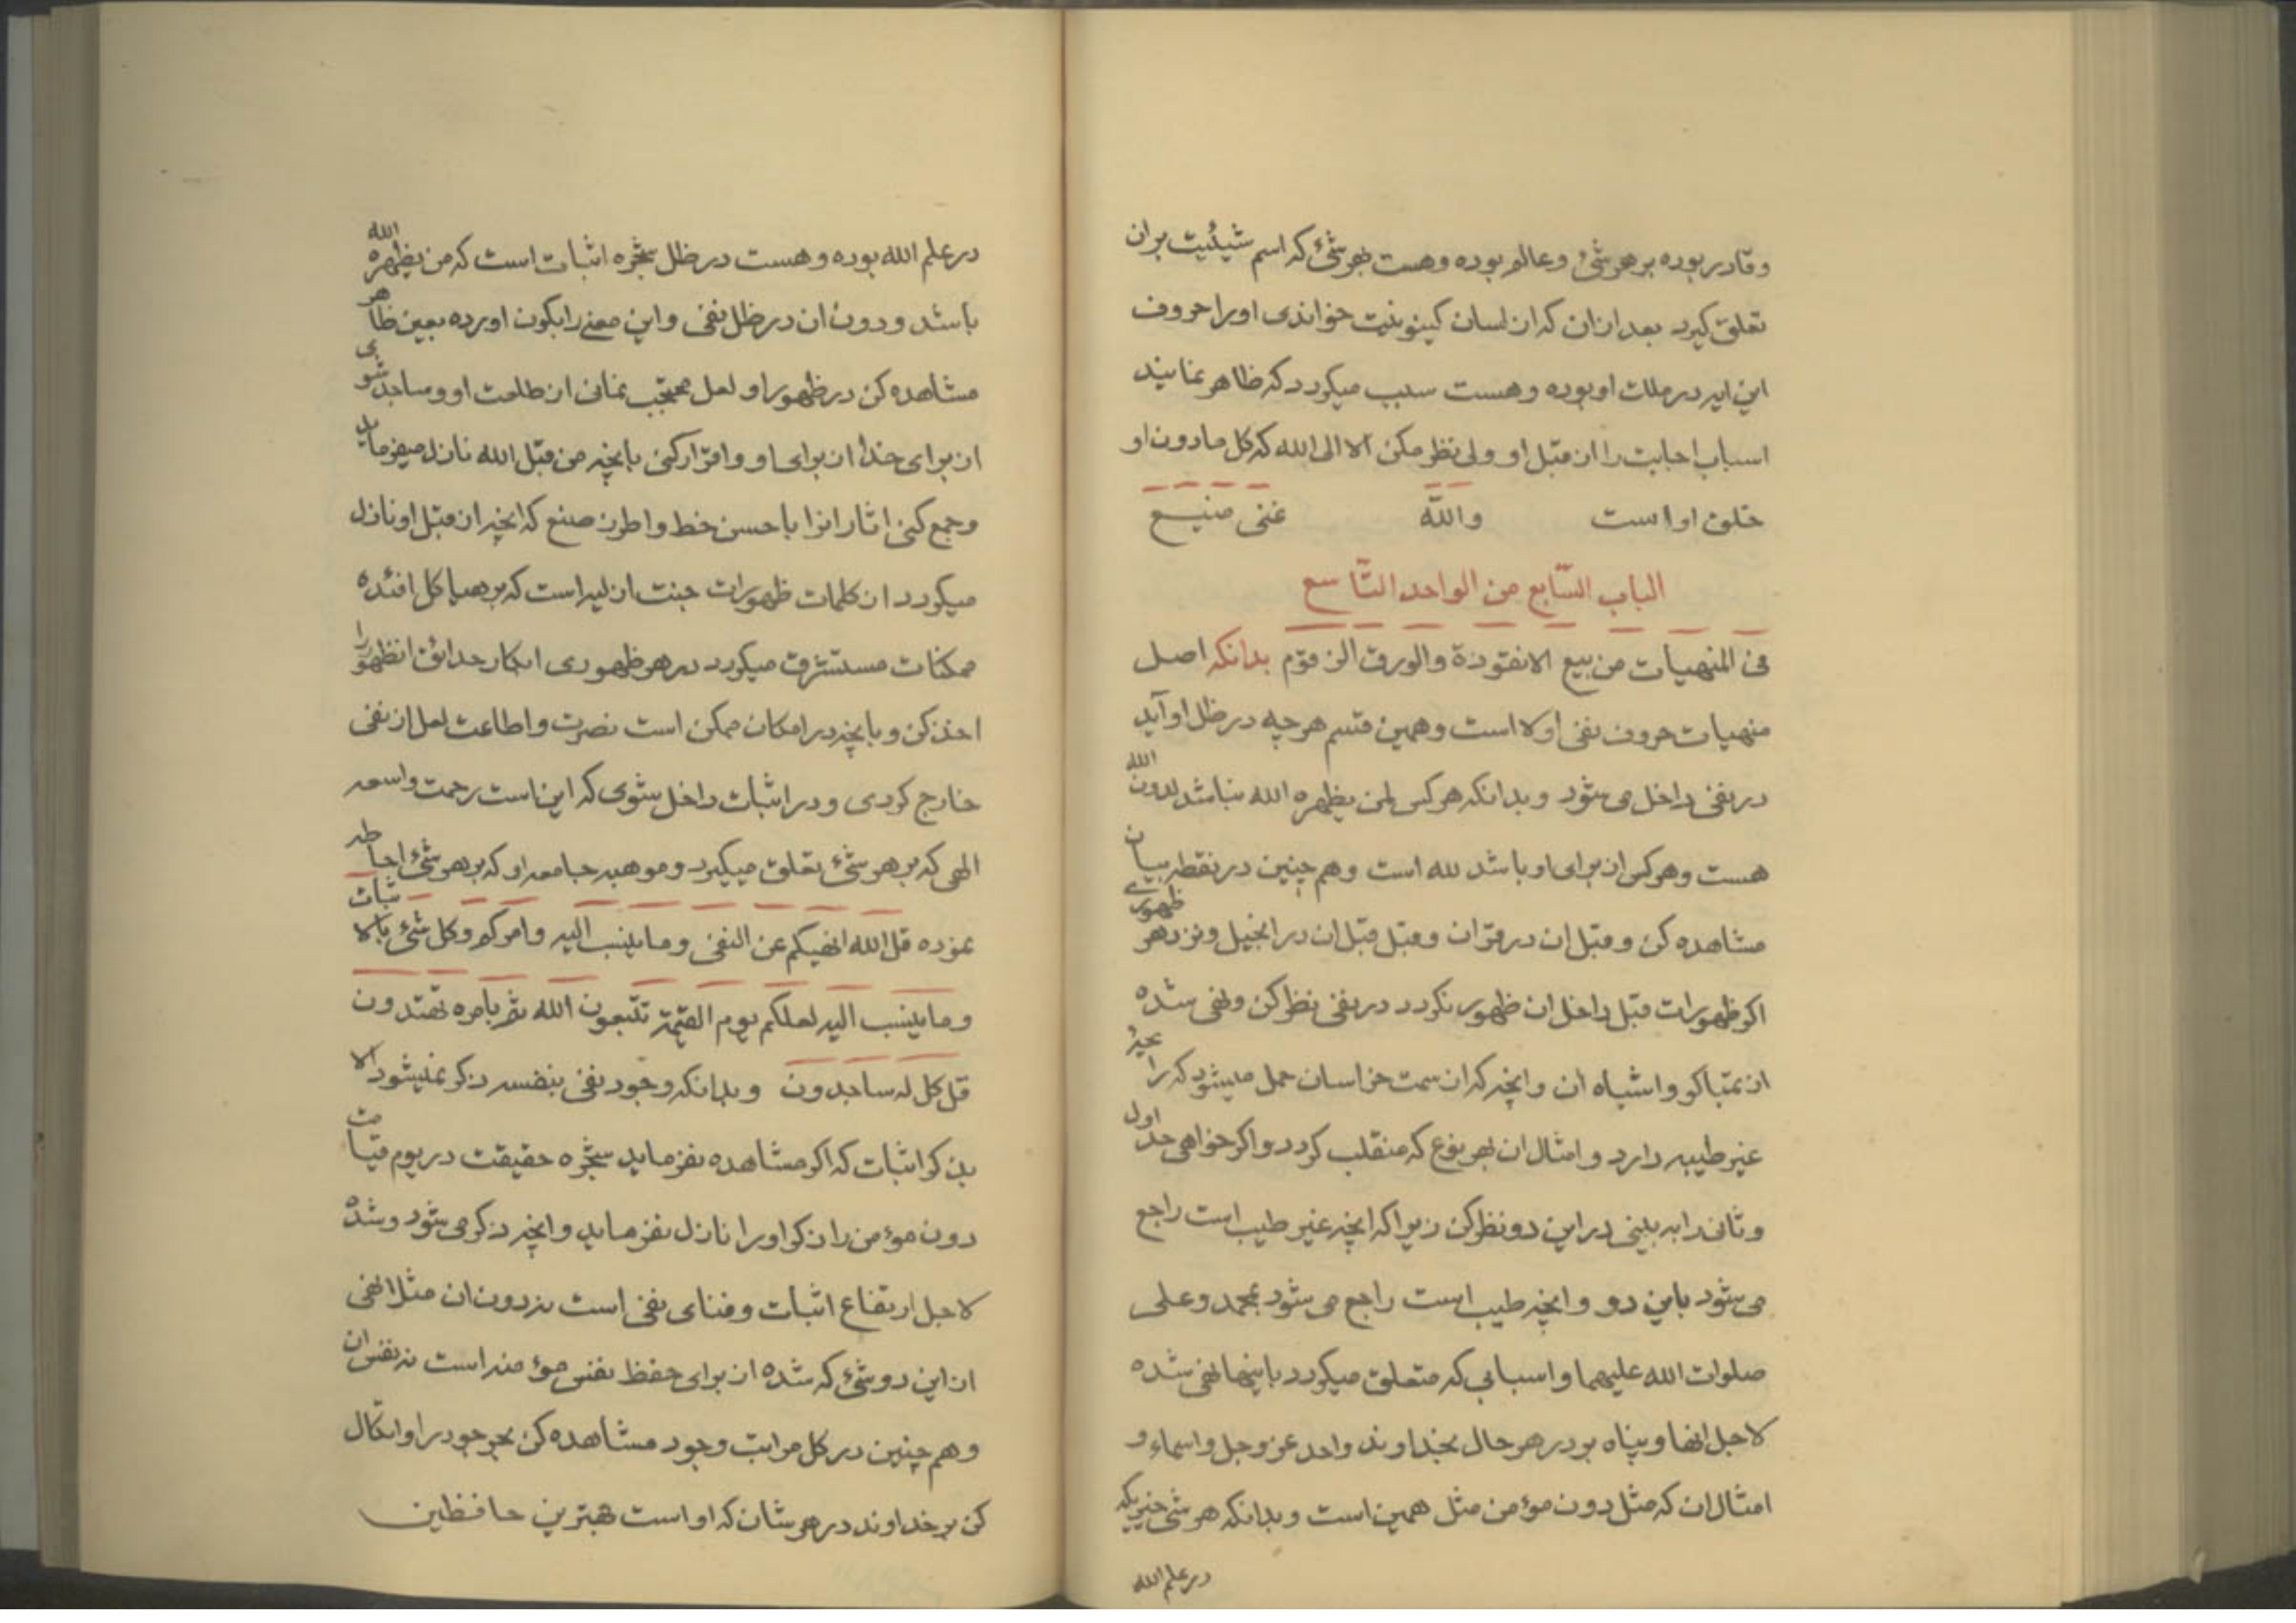 و قادر بوده بر هر شئ و عالم بوده و هست بهر شئ که اسم شیئیت بران
تعلق گیرد بعد از ان که از لسان کینونیت خواندی او را حروف
این ایه در ملک او بوده و هست سبب میگردد که ظاهر نمایند
اسباب اجابت را از قبل او ولی نظر مکن الا الی الله که کل مادون او
خلق او است والله غنی منیع
الباب السّابع من الواحد التّاسع
فی المنهیات من بیع الانقوذة والورق الن قوم بدانکه اصل
منهیات حروف نفی اولا است و همین قسم هر چه در ظل او آید
در نفی داخل می شود و بدانکه هر کس لمن یظهره الله نباشد لدون الله
هست و هر کس از برای او باشد لله است و هم چنین در نقطه بیان
مشاهده کن و قبل ان در قران و قبل قبل ان در انجیل و نزد هر ظهوری
اکر ظهورات قبل داخل ان ظهور نکردد در نفی نظر کن و نهی شده
از تمباکو و اشباه ان و انچه که از سمت خراسان حمل میشود که رایحهٔ
غیر طیبه دارد و امثال ان بهر نوع که منقلب کردد و اکر خواهی حد اول
و ثانی را به بینی در این دو نظر کن زیرا که انچه غیر طیب است راجع
می شود باین دو و انچه طیب است راجع می شود بمحمد و علی
صلوات الله علیهما و اسبابی که متعلق میکردد باینها نهی شده
لاجل انها و پناه بر در هر حال بخداوند واحد عز و جل و اسماء و
امثال ان که مثل دون مؤمن مثل همین است و بدانکه هر شئ خیریکه
در علم الله
در علم الله بوده و هست در ظل شجره اثبات است که من یظهره الله
باشد و دون ان در ظل نفی و این معنی را بکون اورده بعین ظاهر
مشاهده کن در ظهور او لعل محتجب نمانی از طلعت او و ساجد شوی
از برای خدا از برای او و اقرار کنی بانچه من قبل الله نازل میفرماید
و جمع کنی اثار انرا باحسن خط و اطرز صنع که انچه از قبل او نازل
میکردد از کلمات ظهورات جنت ازلیه است که بر هیاکل افئده
ممکنات مستشرق میکردد در هر ظهوری ابکار حدائق انظهور را
اخذ کن و بانچه در امکان ممکن است نصرت و اطاعت لعل از نفی
خارج کردی و در اثبات داخل شوی که این است رحمت واسعه
الهی که بر هر شئ تعلق میکیرد و موهبه جامعه او که بر هر شئ احاطه
نموده قل الله انهیکم عن النفی و ما ینسب الیه و امرکم و کل شئ بالاثبات
و ما ینسب الیه لعلکم یوم القیمة تتبعون الله ثم بامره تهتدون
قل کل له ساجدون و بدانکه وجود نفی بنفسه ذکر نمیشود الا
بذکر اثبات که اکر مشاهده نفرماید شجره حقیقت در یوم قیامت
دون مؤمن را ذکر او را نازل نفرماید و انچه ذکر می شود و شده
لاجل ارتفاع اثبات و فنای نفی است نه دون ان مثل انهی
از این دو شئ که شده از برای حفظ نفس مؤمنه است نه نفس ان
و هم چنین در کل مراتب وجود مشاهده کن بحر جود را و اتکال
کن بر خداوند در هر شان که او است بهترین حافظین